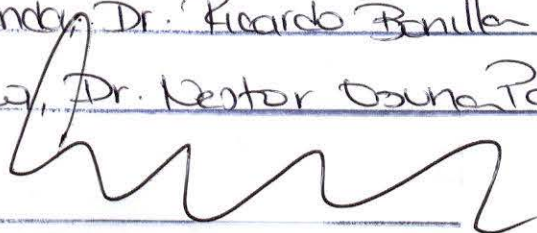 nda, Dr. Ricardo Bonilla
Dr. Nestor Osuna Pa